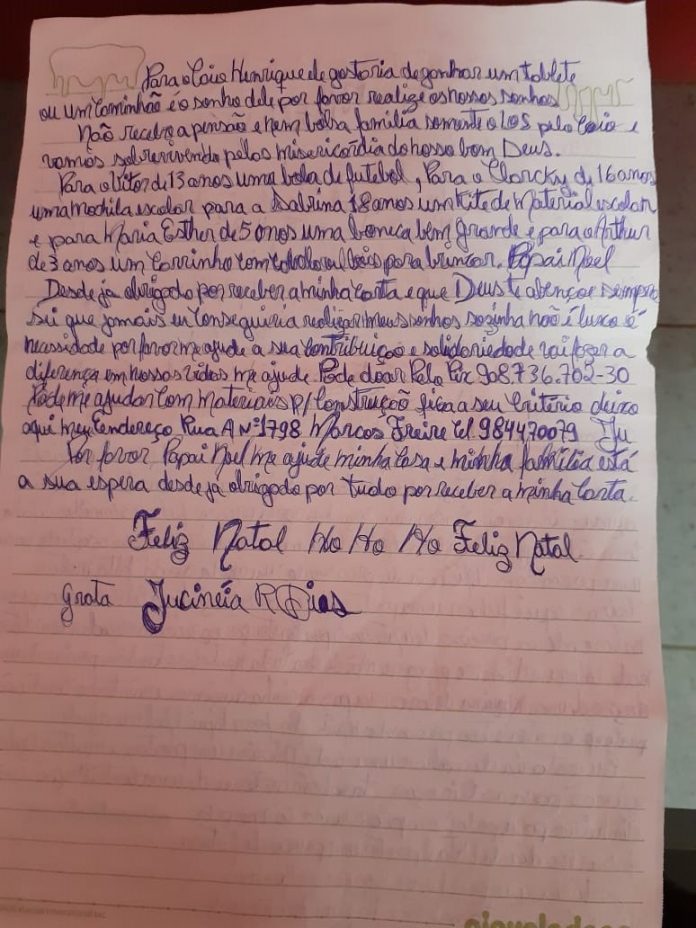 Para o Caio Henrique ele gostaria de ganhar um tablete
ou um Caminhão é o sonho dele por favor realize os nossos sonhos
Não recebo a pensão e nem bolsa família somente o LOS pelo Caio e
vamos sobrevivendo pelas misericórdia do nosso bom Deus.
Para o Vitor de 13 anos uma bola de futebol, Para o Clarcky de 16 anos
uma mochila escolar para a Sabrina 18 anos um Kite de Material escolar
e para Maria Esther de 5 anos uma boneca bem grande e para o Arthur
de 3 anos um Carrinho com para brincar. Papai Noel
Desde já obrigado por receber a minha Carta e que Deus te abençoe sempre
sei que jamais eu Conseguiria realizar meus sonhos sozinha não é luxo é
necessidade por favor me ajude a sua Contribuição e solidariedade vai fazer a
diferença em nossas vidas me ajude. Pode doar Pelo Pix 908.736.702-30
Pode me ajudar Com materiais p/ Construção fica a seu Critério deixo
aqui meu Endereço Rua A Nº 1798 Marcos Freire Cel 984470079 Ju
Por favor Papai Noel me ajude minha Casa e minha família está
a sua espera desde já obrigado por tudo por receber a minha Carta.
Feliz Natal Ho Ho Ho Feliz Natal
grata Jucinéia R Dias